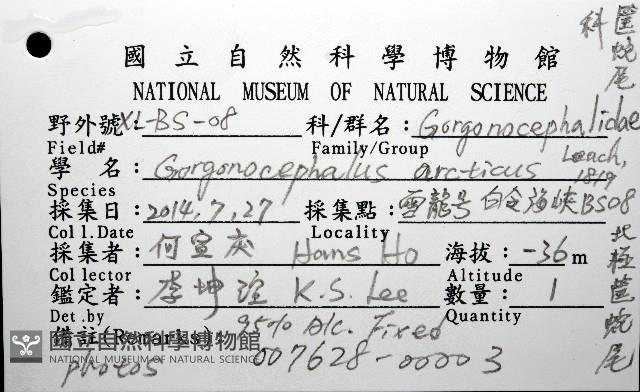 國立自然科學博物館
NATIONAL MUSEUM OF NATURAL SCIENCE
野外號: XL-BS-08 科/群名: Gorgonocephalidae
Field# Family/Group
學 名: Gorgonocephalus arcticus Leach, 1819
Species
採集日: 2014,7,27 採集點: 雪龍号 白令海峽 BS08
Coll.Date Locality
採集者: 何宣 Hans Ho 海拔: -36m
Collector Altitude
鑑定者: 李坤瑄 K.S. Lee 數量: 1
Det.by Quantity
備註(Remarks) 95% Alc. Fixed
photos 007628-00003
筐蛇尾科
北極筐蛇尾
國立自然科學博物館
NATIONAL MUSEUM OF NATURAL SCIENCE